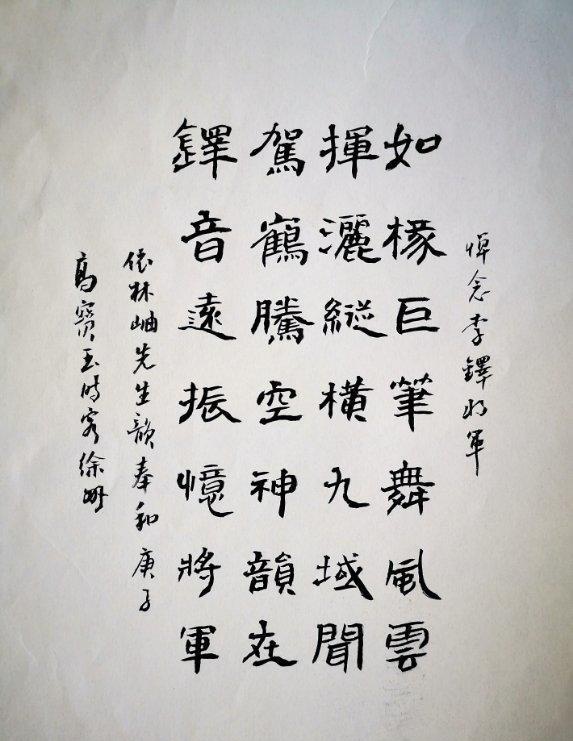 悼念李鐸将军
如椽巨筆舞風雲
揮灑縱橫九域聞
駕鶴騰空神韻在
鐸音遠振憶將軍
依林岫先生韵奉和庚子
高寶玉时客徐州